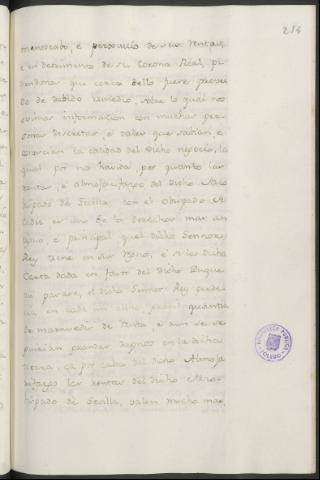 214
menoscabo, é perjuicio de sus Rentas,
é en detrimento de su Corona Real, pi
diendome que cerca dello fuese provei
do de debido remedio, sobre lo qual nos
ovimos informacion con muchas per
sonas discretas, é tales que sabian, é
conocian la calidad del dicho negocio, la
qual por nos havida, por quanto las
rentas, é almojarifazgo del dicho Arzo
bispado de Sevilla, con el Obispado de
Cadiz es uno de los derechos mas an
tiguo, é principal quel dicho Señor
Rey tiene en sus Regnos, é si la dicha
Carta dada en favor del dicho Duque
asi pasase, el dicho Señor Rey perde
ria en cada un año grand quantia
de maravedis de Renta, é aun se se
guirian grandes dapnos en la dicha
tierra, ca por causa del dicho Almoja
rifazgo las rentas del dicho Arzo
bispado de Sevilla, valen mucho mas,
BIBLIOTECA PUBLICA
TOLEDO